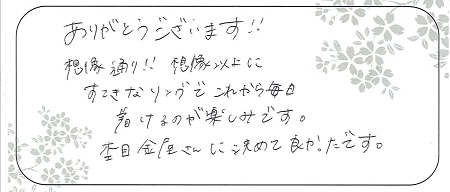 ありがとうございます!!
想像通り!! 想像以上に
すてきなリングで これから毎日
着けるのが楽しみです。
杢目金屋さんに決めて良かったです。